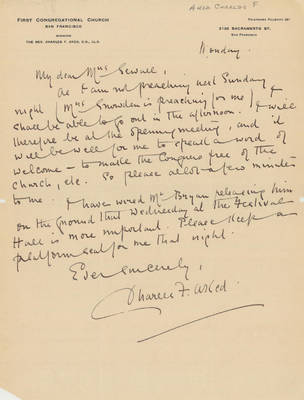 Aked Charles F
FIRST CONGREGATIONAL CHURCH
SAN FRANCISCO
MINISTER
THE REV. CHARLES F. AKED, D.D., LL.D.
2136 SACRAMENTO ST.
SAN FRANCISCO
Monday.
My dear Mrs Sewall,
As I am not preaching next Sunday
night (Mrs Snowden is preaching for me) I
shall be able to go out in the afternoon. I will
therefore be at the opening meeting, and it
will be well for me to speak a word of
welcome – to make the Congress free of the
church, etc. So please allot a few minutes
to me. I have wired Mr Bryan releasing him
on the ground that Wednesday at the Festival
Hall is more important. Please keep a
platform seat for me that night.
Ever sincerely,
Charles F. Aked.